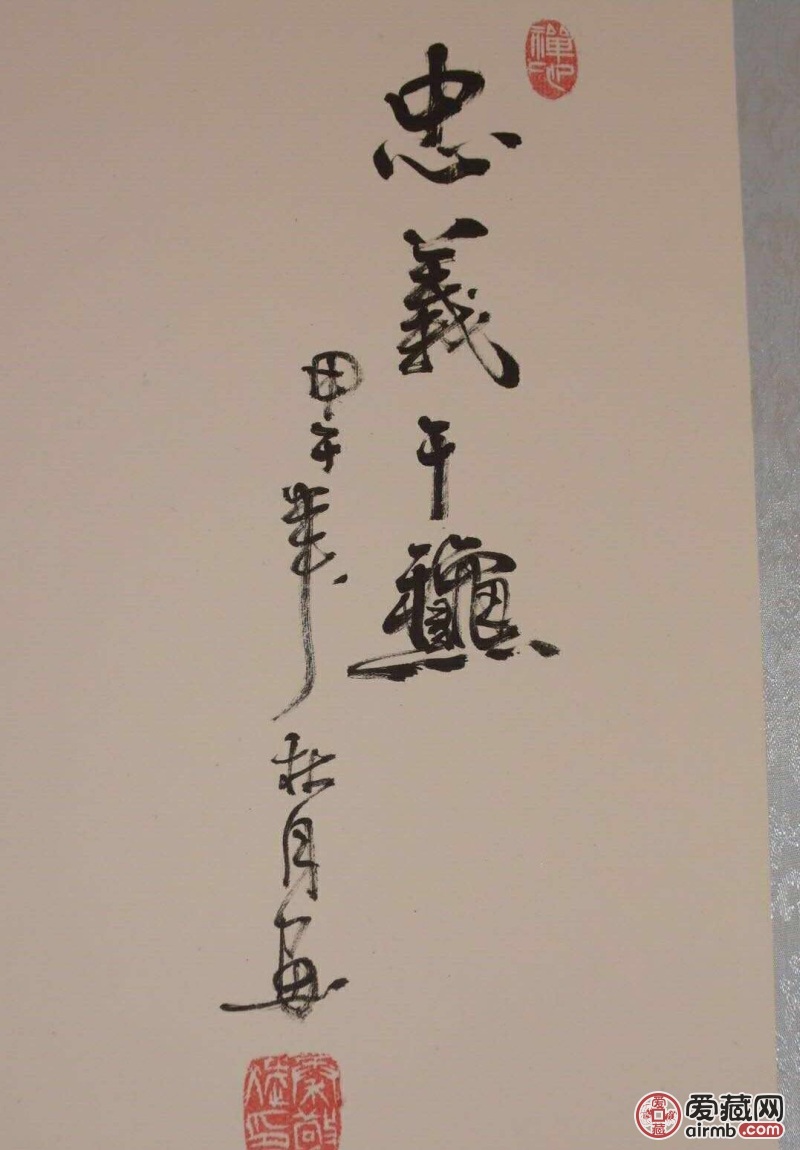 禪心
忠義千龝
甲午年秋月畫
爱藏网
airmb.com